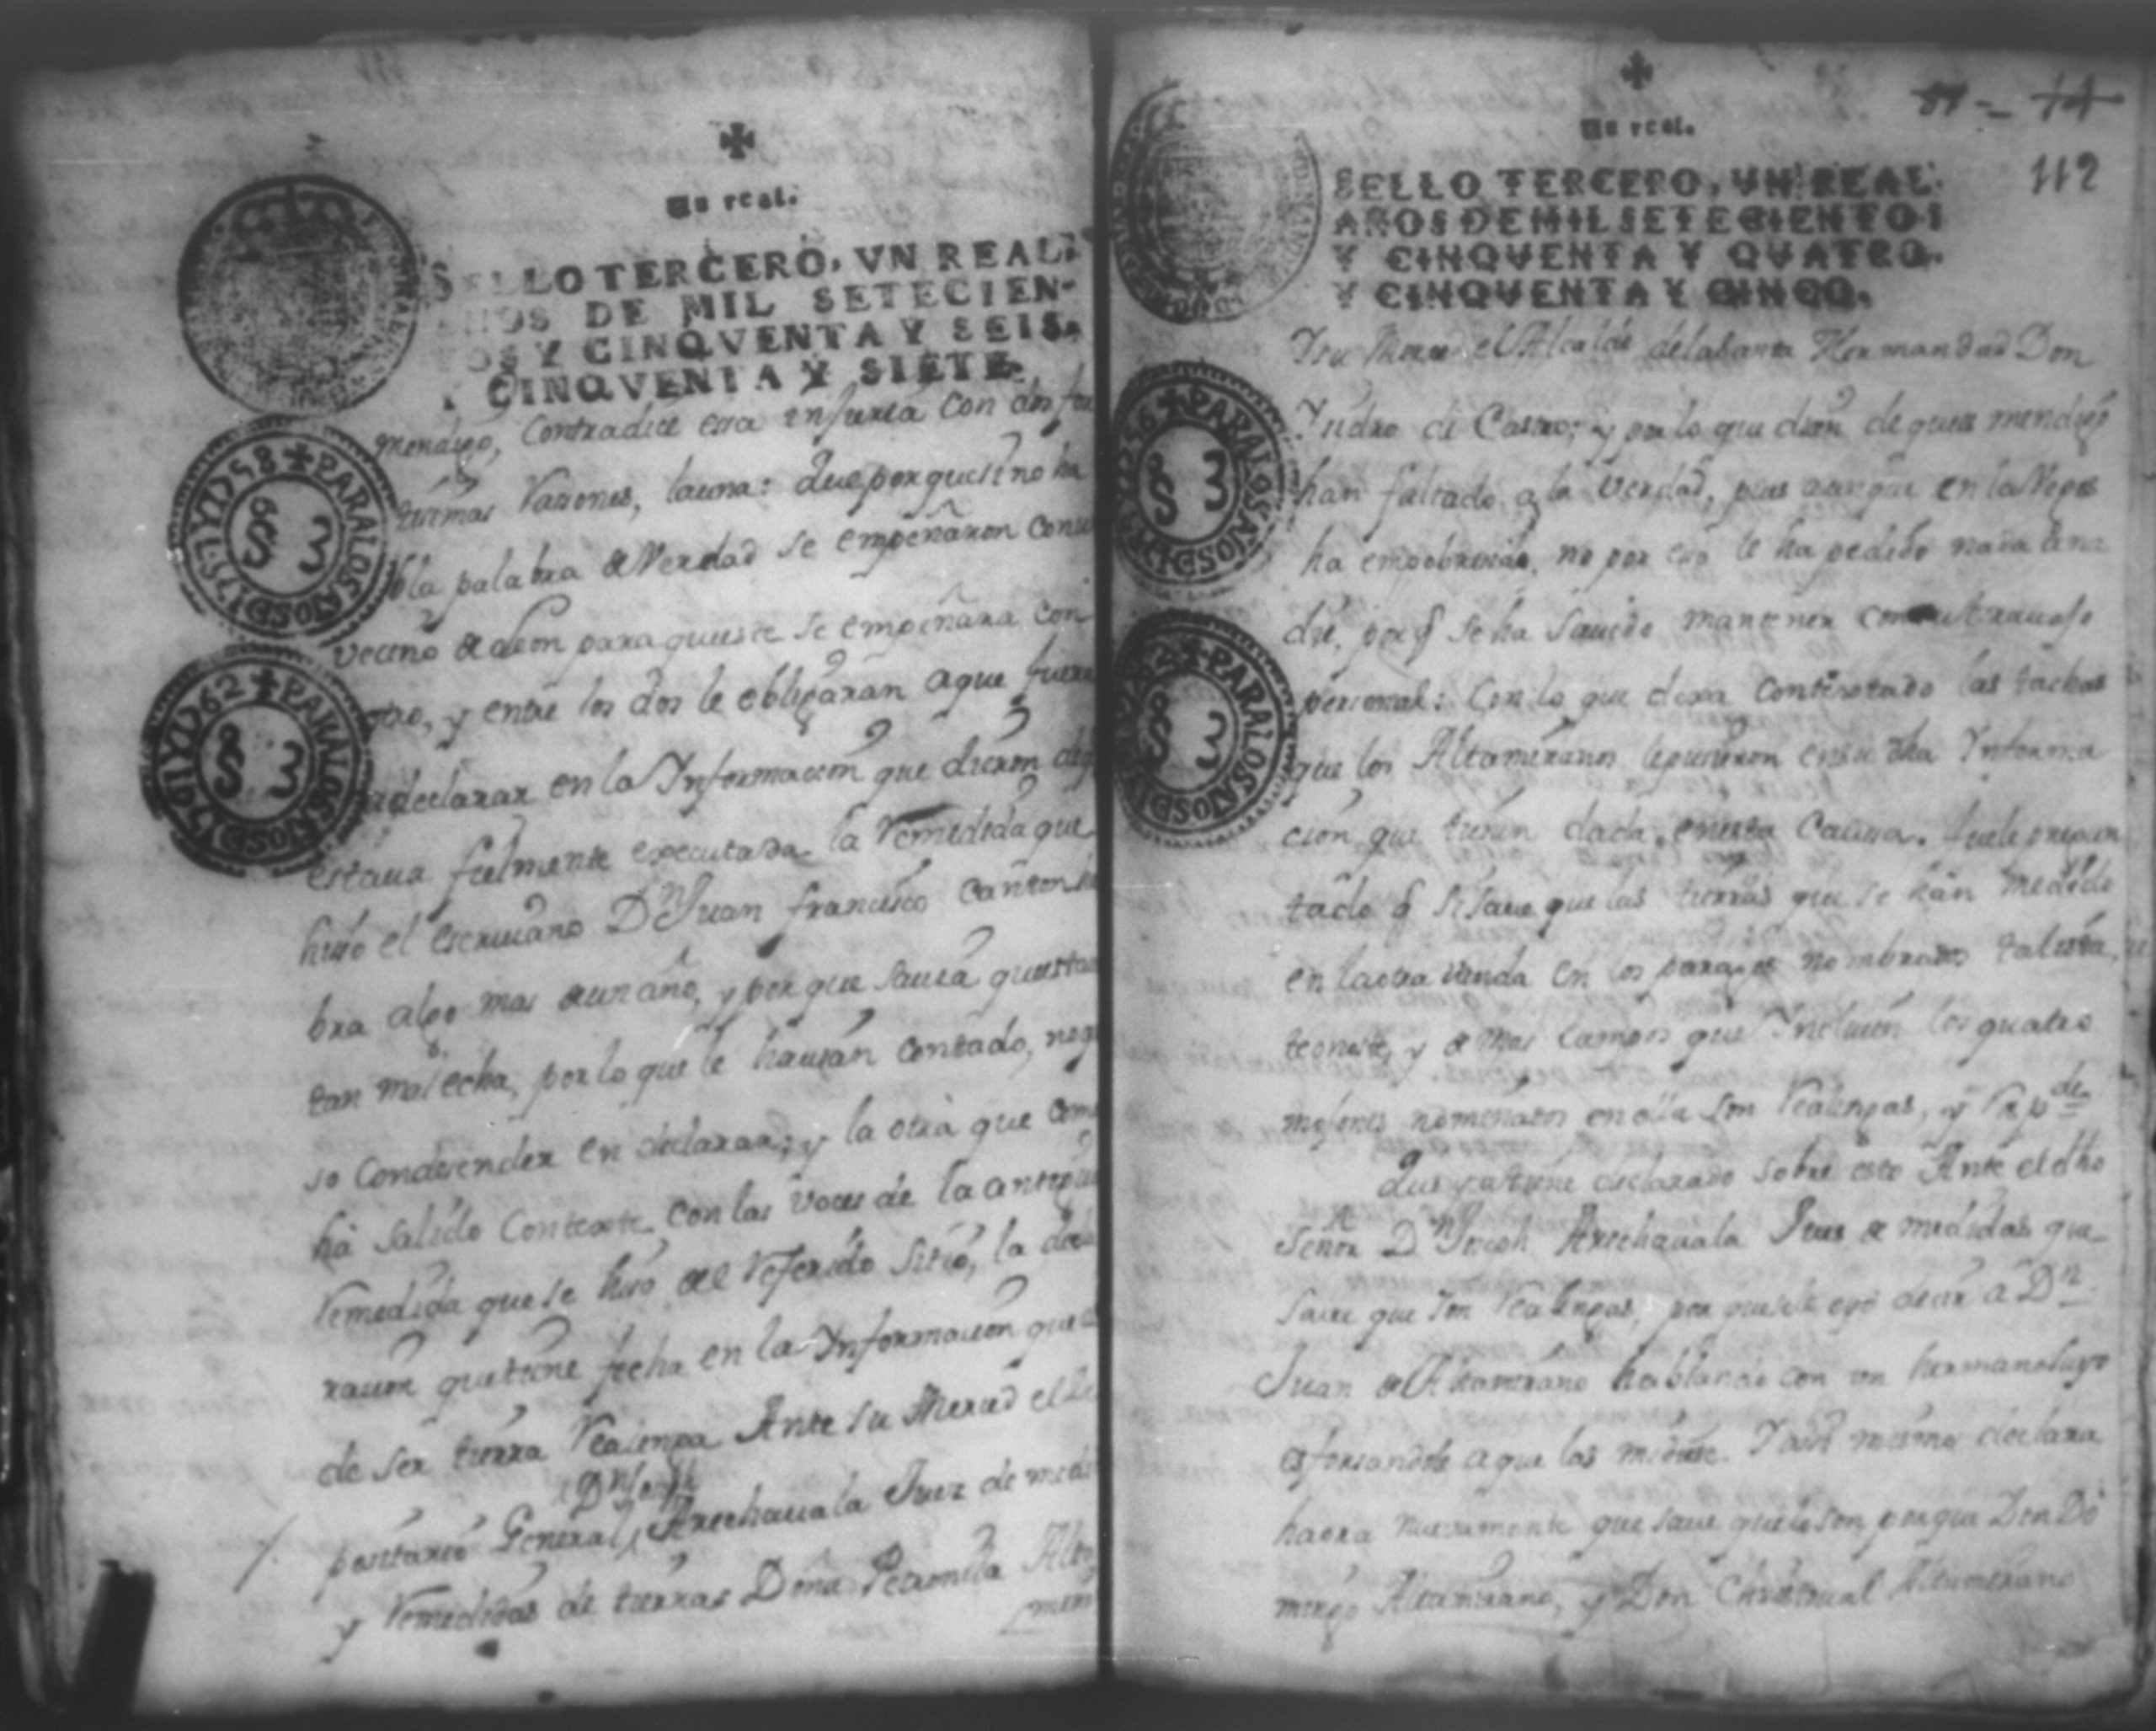 ✠
Un real.
SELLO TERCERO, VN REAL.
AÑOS DE MIL SETECIEN-
TOS Y CINQVENTA Y SEIS.
Y CINQVENTA Y SIETE.
✠PARA LOS AÑOS DE 1757 Y 1758
3
✠PARA LOS AÑOS DE 1761 Y 1762
3
mendigo, Contradice esta injuria con dos for
tisimas Razones, la una: que porque si no ha
bla palabra de Verdad se empeñaron con un
vecino de Leon para que este se empeñara con
otro, y entre los dos le obligaran a que fuera
a declarar en la Ynformacion que dieron de q
estaua fielmente executada la Remedida que
hizo el escriuano Dn Juan francisco Canton ha
bra algo mas de un año, y porque sauia questaua
tan mal echa, por lo que le hauian contado, no qui
so Condesender en declarar; y la otra que como
ha salido Conteste con las voces de la antigua
Remedida que se hizo del referido Sitio, la decla
racion que tiene fecha en la Ynformacion que
de ser tierra Realenga Ante su Merced el De
Dn Joseph
positario General, Arechauala Juez de medi
y Remedidas de tierras Doña Petronila Alta
miran
✠
Un real.
17 - 14
112
SELLO TERCERO, VN REAL.
AÑOS DE MIL SETECIENTOS
Y CINQVENTA Y QVATRO.
Y CINQVENTA Y CINCO.
✠PARA LOS AÑOS DE
3
✠PARA LOS AÑOS DE
3
Y su Merced el Alcalde de la Santa Hermandad Don
Ysidro de Castro; y por lo que dicen de que es mendigo
han faltado a la Verdad, pues aunque en la Vejes
ha empobrecido, no por eso le ha pedido nada a na
die, por q se ha sauido mantener con su trauajo
personal: Con lo que dexa Contestado las tachas
que los Altamiranos le pusieron en su dha Ynforma
cion que tienen dada en esta Causa. fuele pregun
tado q si saue que las tierras que se han medido
en la otra vanda en los parajes nombrados
y de mas Campos que Yncluien los quatro
mojones nominados en ella son Realengas, y Rspde
Que ya tiene declarado sobre esto Ante el dho
Señor Dn Joseph Arechauala Jues de medidas que
saue que son Realengas, porque le oyo decir a Dn
Juan de Altamirano hablando con un hermano suyo
esforsandole a que las midiese. Y asi mismo declara
haora nueuamente que saue que lo son porque Don Do
mingo Altamirano, y Don Christoual Altamirano